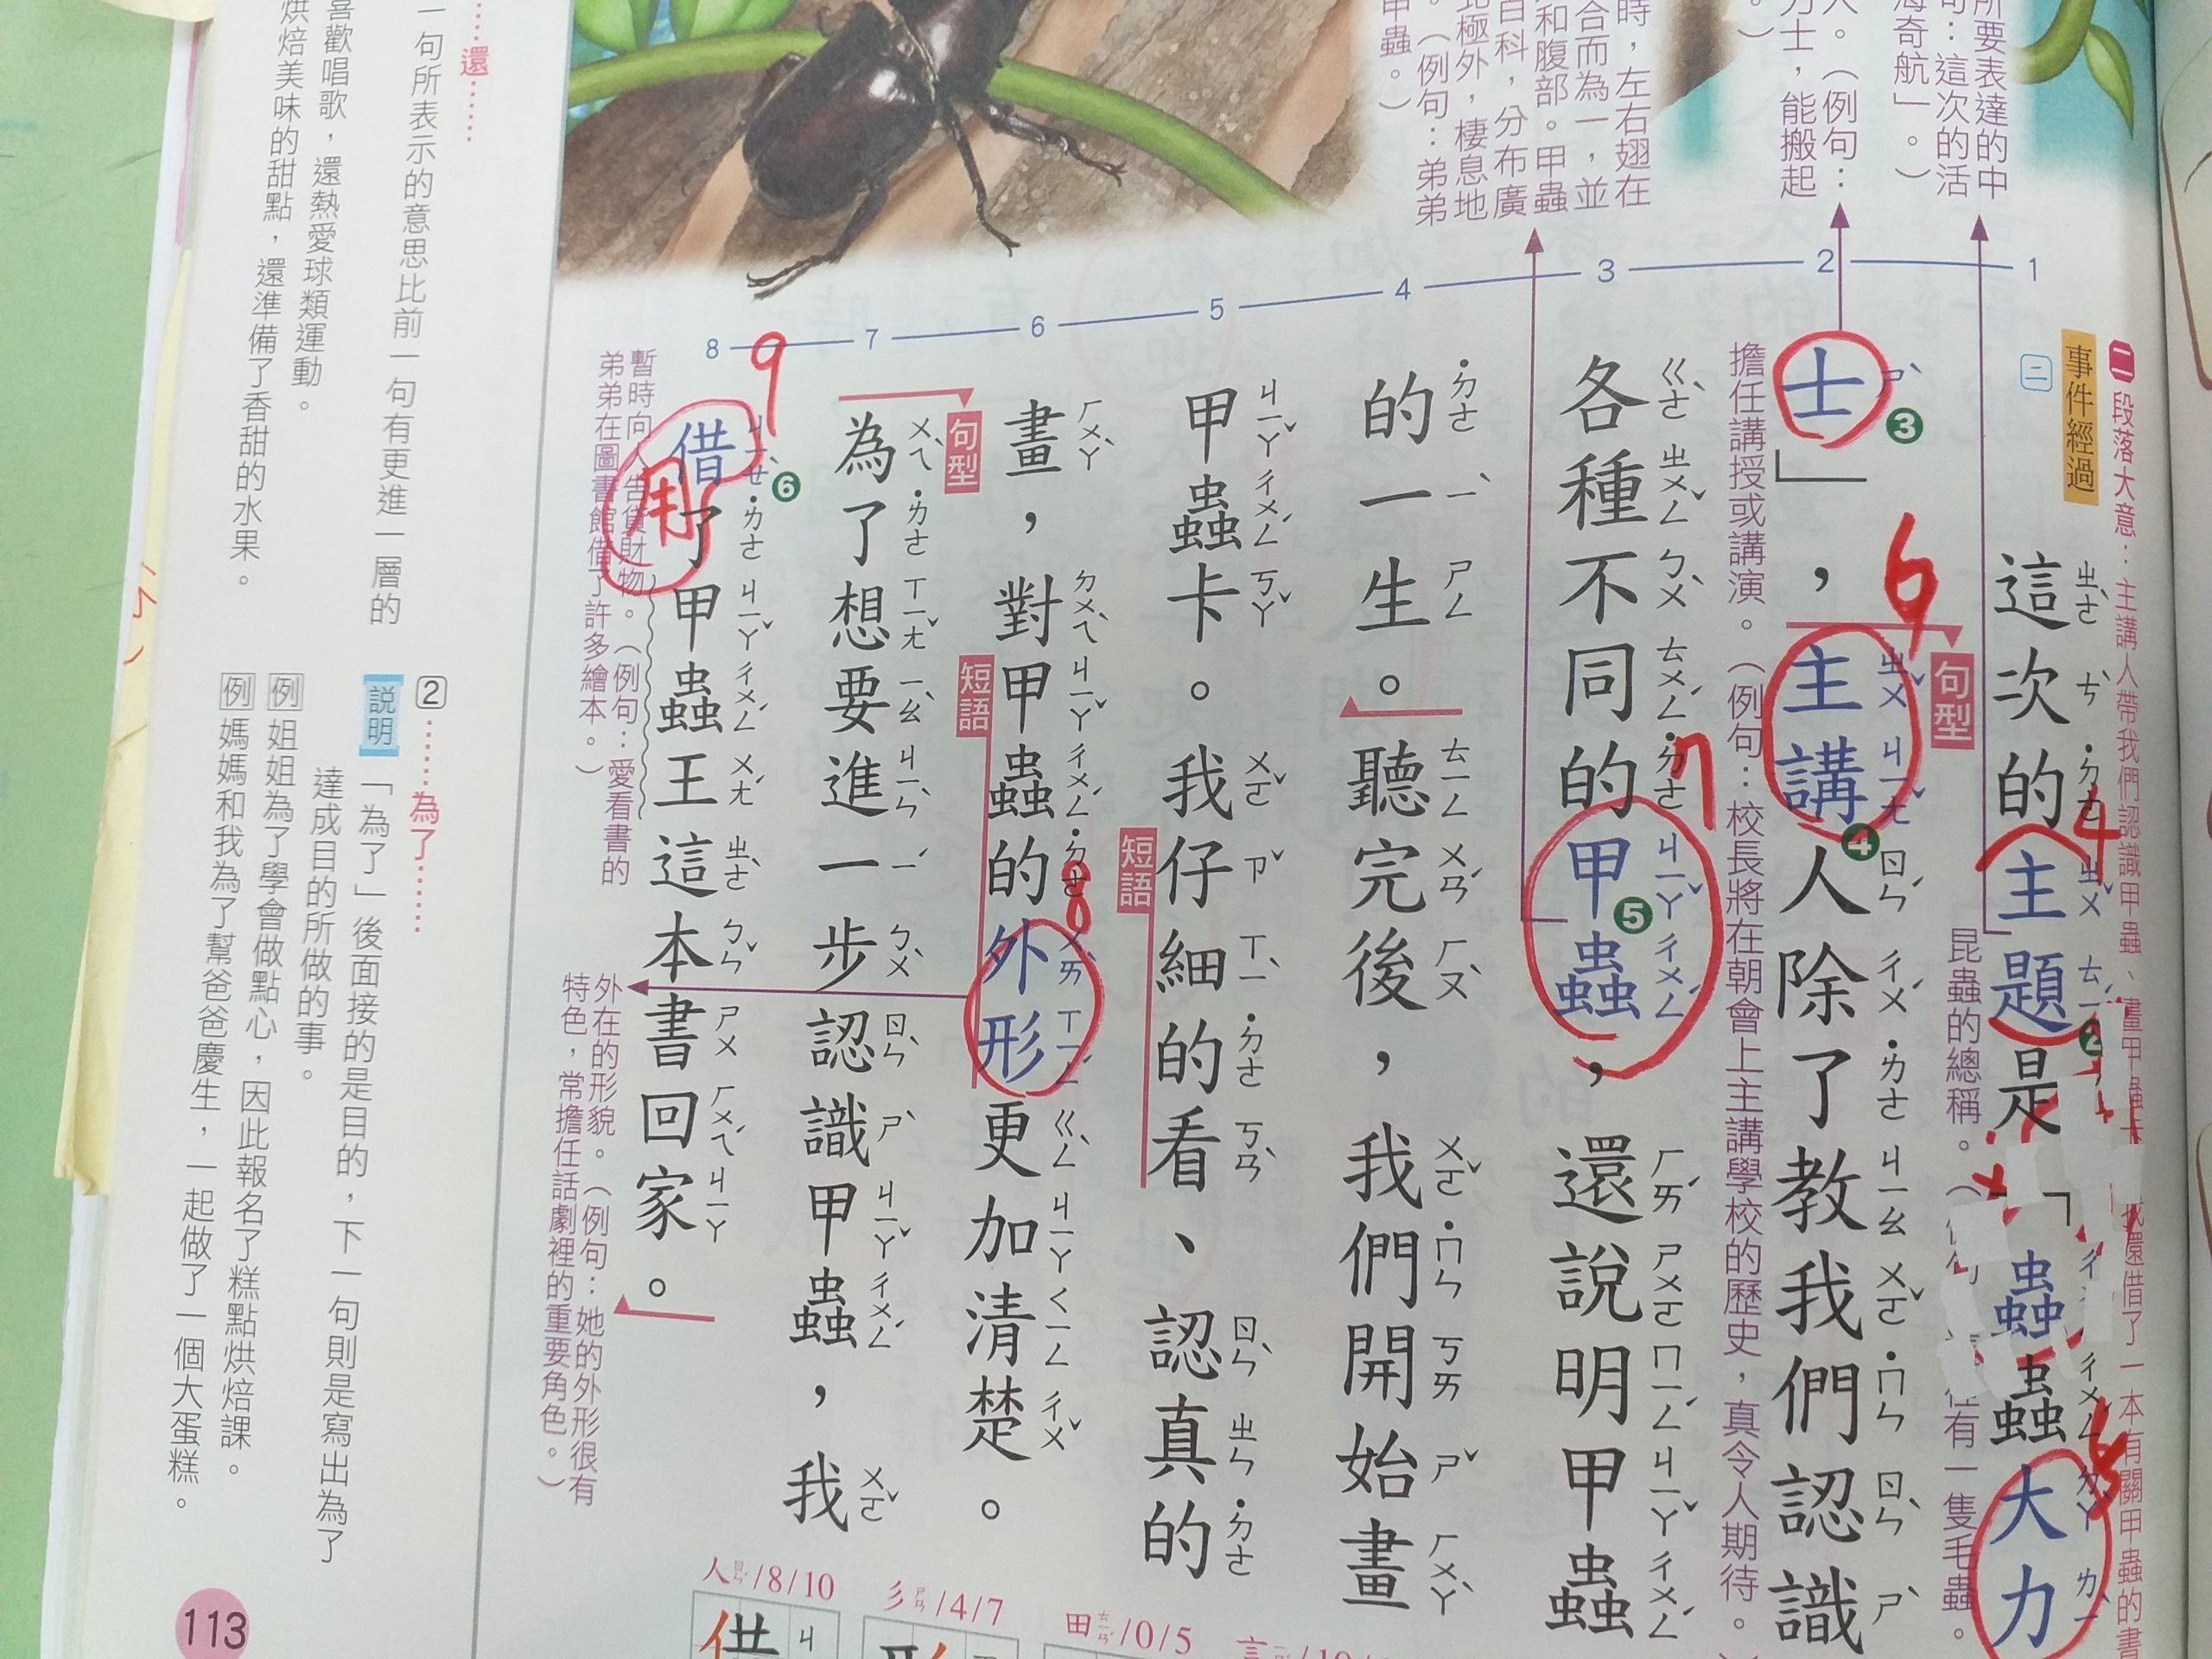 所要表達的中
句：這次的活
海奇航」。）
人。（例句：
力士，能搬起
。）
時，左右翅在
合而為一，並
和腹部。甲蟲
百科，分布廣
北極外，棲息地
。（例句：弟弟
甲蟲。）
1
2
3
4
5
6
7
8
二 段落大意：主講人帶我們認識甲蟲、畫甲蟲卡
還借了一本有關甲蟲的書
事件經過
二
這次的主題是「蟲蟲大力
昆蟲的總稱。
有一隻毛蟲。
句型
士」，主講人除了教我們認識
擔任講授或講演。（例句：校長將在朝會上主講學校的歷史，真令人期待。）
各種不同的甲蟲，還說明甲蟲
的一生。聽完後，我們開始畫
甲蟲卡。我仔細的看、認真的
短語
畫，對甲蟲的外形更加清楚。
短語
句型
為了想要進一步認識甲蟲，我
借了甲蟲王這本書回家。
暫時向人告貸財物。（例句：愛看書的
弟弟在圖書館借了許多繪本。）
外在的形貌。（例句：她的外形很有
特色，常擔任話劇裡的重要角色。）
2
3
4
5
6
4
5
6
7
8
9
用
……還……
一句所表示的意思比前一句有更進一層的
喜歡唱歌，還熱愛球類運動。
烘焙美味的甜點，還準備了香甜的水果。
2 ……為了……
說明 「為了」後面接的是目的，下一句則是寫出為了
達成目的所做的事。
例 姐姐為了學會做點心，因此報名了糕點烘焙課。
例 媽媽和我為了幫爸爸慶生，一起做了一個大蛋糕。
人/8/10
彡/4/7
田/0/5
借
形
113